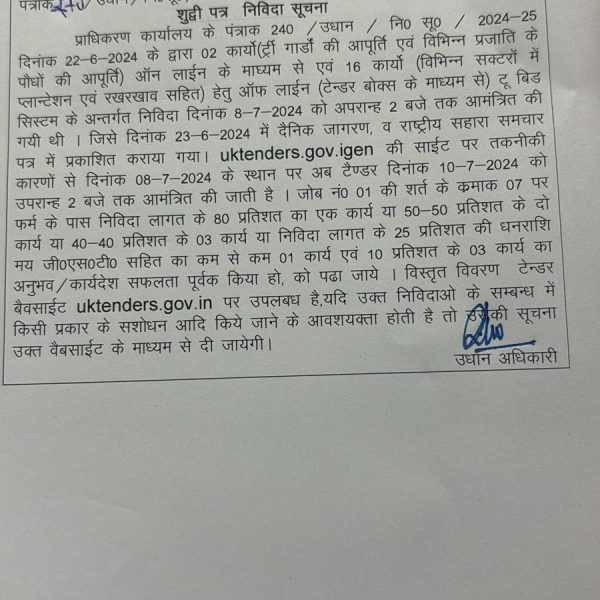 पत्रांक270/ उधान/
शुद्वी पत्र निविदा सूचना
प्राधिकरण कार्यालय के पंत्राक 240 /उधान / नि0 सू0 / 2024-25
दिनांक 22-6-2024 के द्वारा 02 कार्यो(र्ट्री गार्डो की आपूर्ति एवं विभिन्न प्रजाति के
पौधों की आपूर्ति) ऑन लाईन के माध्यम से एवं 16 कार्यो (विभिन्न सक्टरों में
प्लान्टेशन एवं रखरखाव सहित) हेतु ऑफ लाईन (टेन्डर बोक्स के माध्यम से) टू बिड
सिस्टम के अन्तर्गत निविदा दिनांक 8-7-2024 को अपरान्ह 2 बजे तक आमंत्रित की
गयी थी । जिसे दिनांक 23-6-2024 में दैनिक जागरण, व राष्ट्रीय सहारा समचार
पत्र में प्रकाशित कराया गया। uktenders.gov.igen की साईट पर तकनीकी
कारणों से दिनांक 08-7-2024 के स्थान पर अब टैण्डर दिनांक 10-7-2024 को
उपरान्ह 2 बजे तक आमंत्रित की जाती है । जोब नं0 01 की शर्त के क्रमाक 07 पर
फर्म के पास निविदा लागत के 80 प्रतिशत का एक कार्य या 50-50 प्रतिशत के दो
कार्य या 40-40 प्रतिशत के 03 कार्य या निविदा लागत के 25 प्रतिशत की धनराशि
मय जी0एस0टी0 सहित का कम से कम 01 कार्य एवं 10 प्रतिशत के 03 कार्य का
अनुभव/कार्यदेश सफलता पूर्वक किया हो, को पढा जाये । विस्तृत विवरण टेन्डर
बैवसाईट uktenders.gov.in पर उपलबध है,यदि उक्त निविदाओ के सम्बन्ध में
किसी प्रकार के सशोधन आदि किये जाने के आवशयक्ता होती है तो उसकी सूचना
उक्त वैबसाईट के माध्यम से दी जायेगी।
उधान अधिकारी